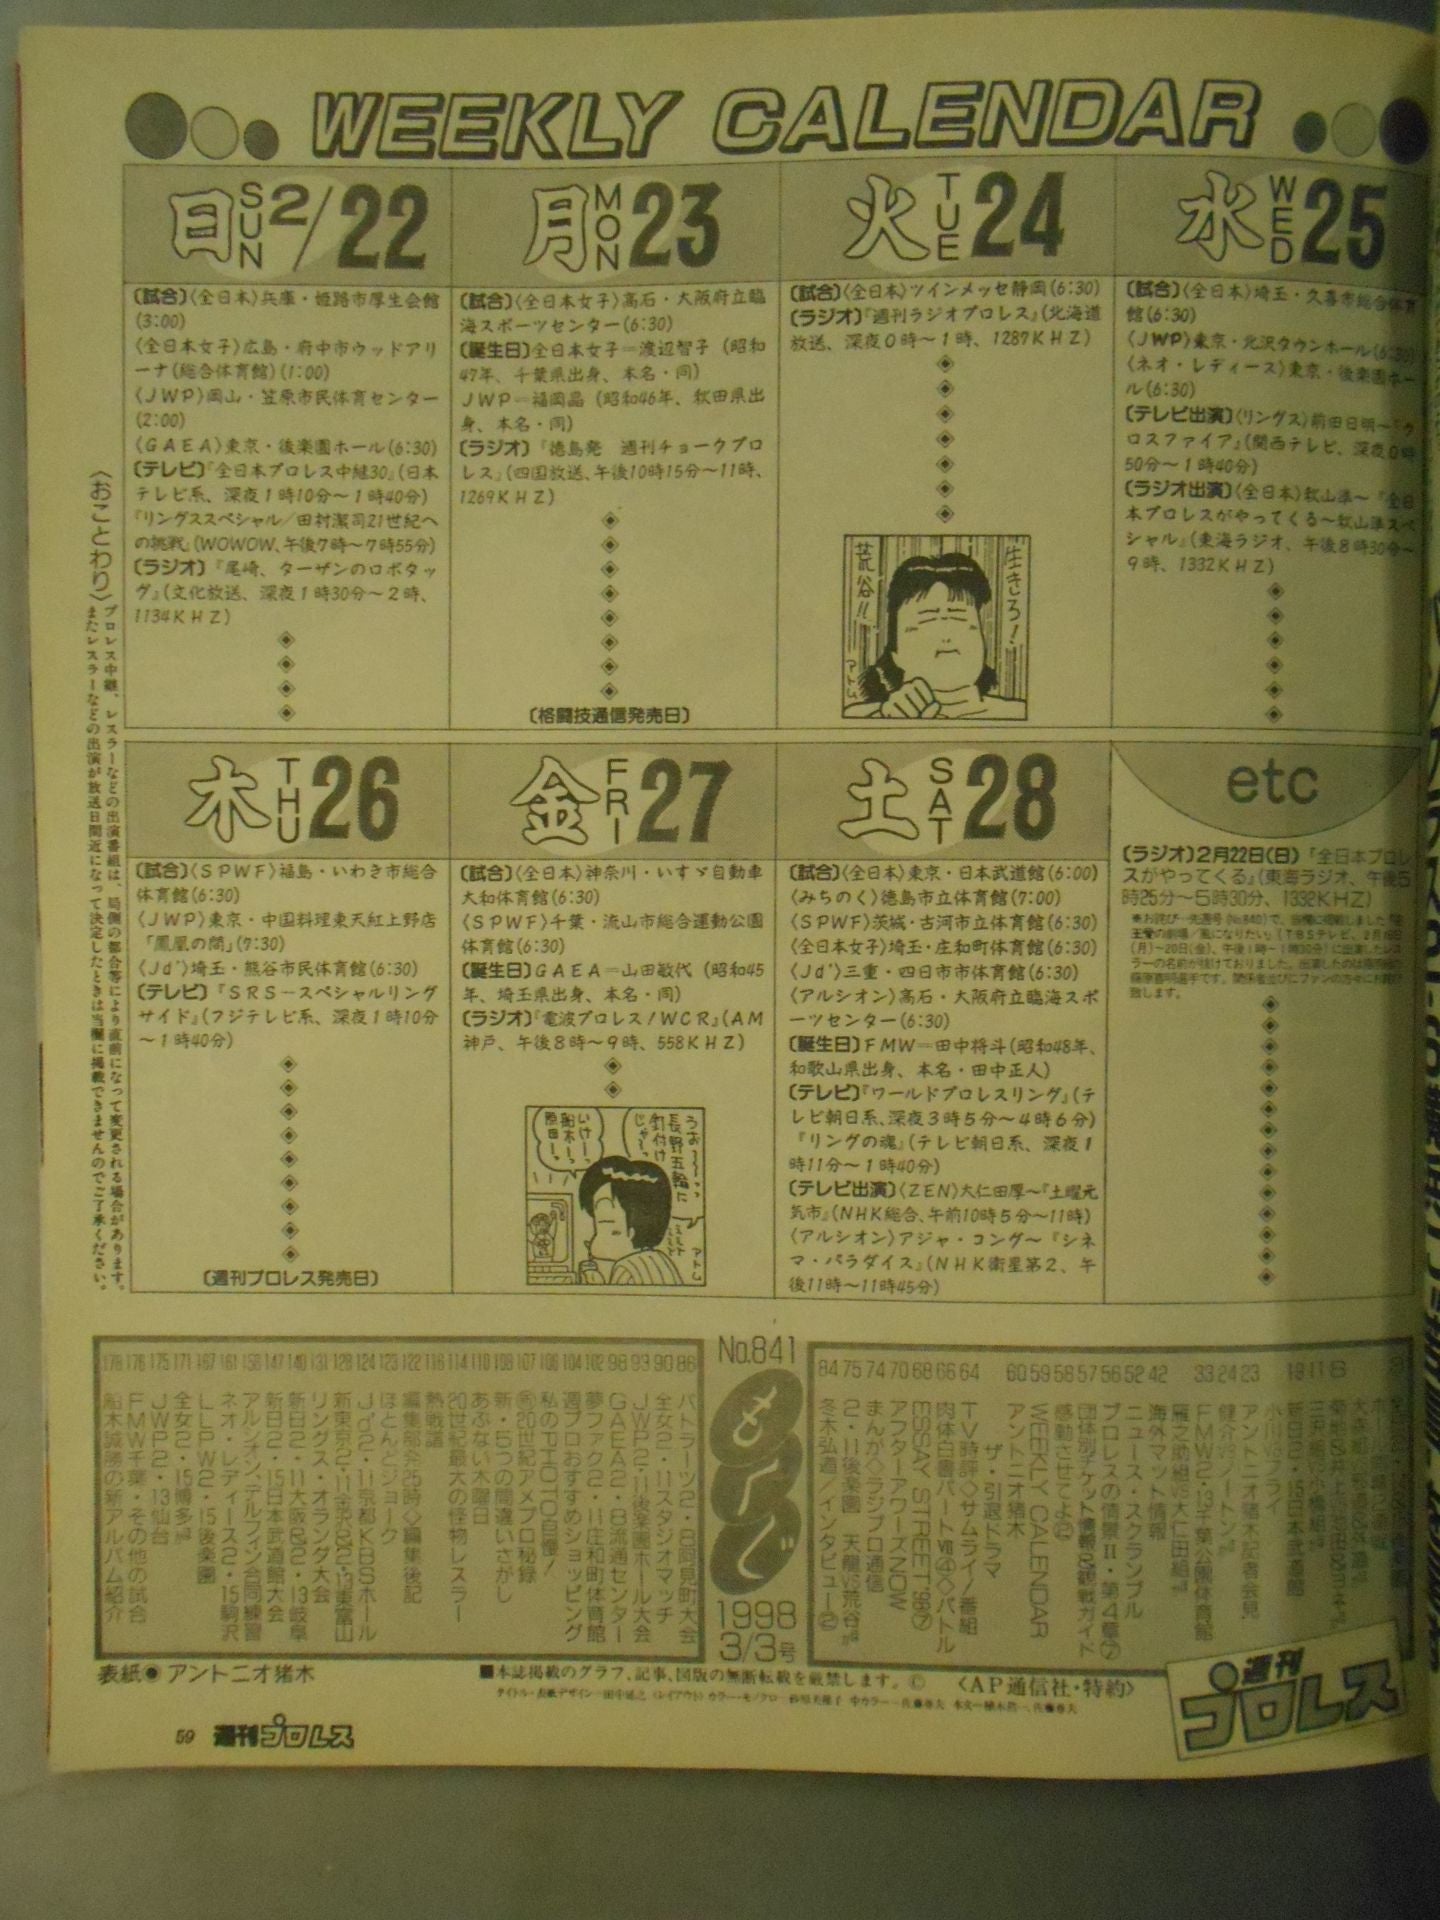 WEEKLY CALENDAR
日 SUN 2/22
〔試合〕〈全日本〉兵庫・姫路市厚生会館
(3:00)
〈全日本女子〉広島・府中市ウッドアリ
ーナ(総合体育館)(1:00)
〈JWP〉岡山・笠原市民体育センター
(2:00)
〈GAEA〉東京・後楽園ホール(6:30)
〔テレビ〕『全日本プロレス中継30』(日本
テレビ系、深夜1時10分〜1時40分)
『リングススペシャル/田村潔司21世紀へ
の挑戦』(WOWOW、午後7時〜7時55分)
〔ラジオ〕『尾崎、ターザンのロボタッ
グ』(文化放送、深夜1時30分〜2時、
1134KHZ)
月 MON 23
〔試合〕〈全日本女子〉高石・大阪府立臨
海スポーツセンター(6:30)
〔誕生日〕全日本女子=渡辺智子(昭和
47年、千葉県出身、本名・同)
JWP=福岡晶(昭和46年、秋田県出
身、本名・同)
〔ラジオ〕『徳島発 週刊チョークプロ
レス』(四国放送、午後10時15分〜11時、
1269KHZ)
〔格闘技通信発売日〕
火 TUE 24
〔試合〕〈全日本〉ツインメッセ静岡(6:30)
〔ラジオ〕『週刊ラジオプロレス』(北海道
放送、深夜0時〜1時、1287KHZ)
生きろ!
荒谷!!
アトム
水 WED 25
〔試合〕〈全日本〉埼玉・久喜市総合体育
館(6:30)
〈JWP〉東京・北沢タウンホール(6:30)
〈ネオ・レディース〉東京・後楽園ホー
ル(6:30)
〔テレビ出演〕〈リングス〉前田日明〜『クロスファイア』(関西テレビ、深夜0時
50分〜1時40分)
〔ラジオ出演〕〈全日本〉秋山準〜『全日
本プロレスがやってくる〜秋山準スペ
シャル』(東海ラジオ、午後8時30分〜
9時、1332KHZ)
木 THU 26
〔試合〕〈SPWF〉福島・いわき市総合
体育館(6:30)
〈JWP〉東京・中国料理東天紅上野店
「鳳凰の間」(7:30)
〈Jd'〉埼玉・熊谷市民体育館(6:30)
〔テレビ〕『SRS−スペシャルリング
サイド』(フジテレビ系、深夜1時10分
〜1時40分)
〔週刊プロレス発売日〕
金 FRI 27
〔試合〕〈全日本〉神奈川・いすゞ自動車
大和体育館(6:30)
〈SPWF〉千葉・流山市総合運動公園
体育館(6:30)
〔誕生日〕GAEA=山田敏代(昭和45
年、埼玉県出身、本名・同)
〔ラジオ〕『電波プロレス!WCR』(AM
神戸、午後8時〜9時、558KHZ)
うお〜〜っっ
長野五輪に
釘付け
じゃ〜っ
いけーっ
船木ーっ
原田ーっ
アトム
土 SAT 28
〔試合〕〈全日本〉東京・日本武道館(6:00)
〈みちのく〉徳島市立体育館(7:00)
〈SPWF〉茨城・古河市立体育館(6:30)
〈全日本女子〉埼玉・庄和町体育館(6:30)
〈Jd'〉三重・四日市市体育館(6:30)
〈アルシオン〉高石・大阪府立臨海スポ
ーツセンター(6:30)
〔誕生日〕FMW=田中将斗(昭和48年、
和歌山県出身、本名・田中正人)
〔テレビ〕『ワールドプロレスリング』(テ
レビ朝日系、深夜3時5分〜4時6分)
『リングの魂』(テレビ朝日系、深夜1
時11分〜1時40分)
〔テレビ出演〕〈ZEN〉大仁田厚〜『土曜元
気市』(NHK総合、午前10時5分〜11時)
〈アルシオン〉アジャ・コング〜『シネ
マ・パラダイス』(NHK衛星第2、午
後11時〜11時45分)
etc
〔ラジオ〕2月22日(日)『全日本プロレ
スがやってくる』(東海ラジオ、午後5
時25分〜5時30分、1332KHZ)
※お詫び−先週号(No.840)で、当欄に掲載しました
の劇場/風になりたい』(TBSテレビ、2月16日
(月)〜20日(金)、午後1時〜1時30分)に出演したレス
ラーの名前が抜けておりました。出演したのは
選手です。関係者並びにファンの方々にお詫び
致します。
〈おことわり〉プロレス中継、レスラーなどの出演番組は、局側の都合等により直前になって変更される場合があります。
またレスラーなどの出演が放送日間近になって決定したときは当欄に掲載できませんのでご了承ください。
No.841
もくじ
1998
3/3号
23 アントニオ猪木記者会見
24 健介VSノートン
33 FMW2・13千葉公園体育館
雁之助組VS大仁田組
42 海外マット情報
52 ニュース・スクランブル
56 プロレスの情景II・第4章⑦
57 団体別チケット情報&観戦ガイド
58 感動させてよ
59 WEEKLY CALENDAR
60 アントニオ猪木
ザ・引退ドラマ
64 TV時評◇サムライ!番組
66 肉体白書パートⅦ④◇バトル
68 ESSAY STREET'98⑦
70 アフターアワーズNOW
74 まんが◇ラジプロ通信
75 2・11後楽園 天龍VS荒谷
84 冬木弘道/インタビュー②
86 バトラーツ2・8阿見町大会
90 全女2・11スタジオマッチ
93 JWP2・11後楽園ホール大会
98 GAEA2・8流通センター
102 夢ファク2・11庄和町体育館
104 週プロおすすめショッピング
106 私のPHOTO自慢!
107 20世紀アメプロ秘録
108 新・5つの間違いさがし
110 あぶない木曜日
114 20世紀最大の怪物レスラー
116 熱戦譜
122 編集部発25時◇編集後記
123 ほとんとジョーク
124 Jd'2・11京都KBSホール
128 新東京2・11金沢&2・13東富山
131 リングス・オランダ大会
140 新日2・11大阪&2・13岐阜
147 新日2・15日本武道館大会
158 アルシオン、デルフィン合同練習
161 ネオ・レディース2・15駒沢
167 LLPW2・15後楽園
171 全女2・15博多
175 JWP2・13仙台
176 FMW千葉・その他の試合
178 船木誠勝の新アルバム紹介
表紙●アントニオ猪木
■本誌掲載のグラフ、記事、図版の無断転載を厳禁します。©〈AP通信社・特約〉
週刊プロレス
59 週刊プロレス